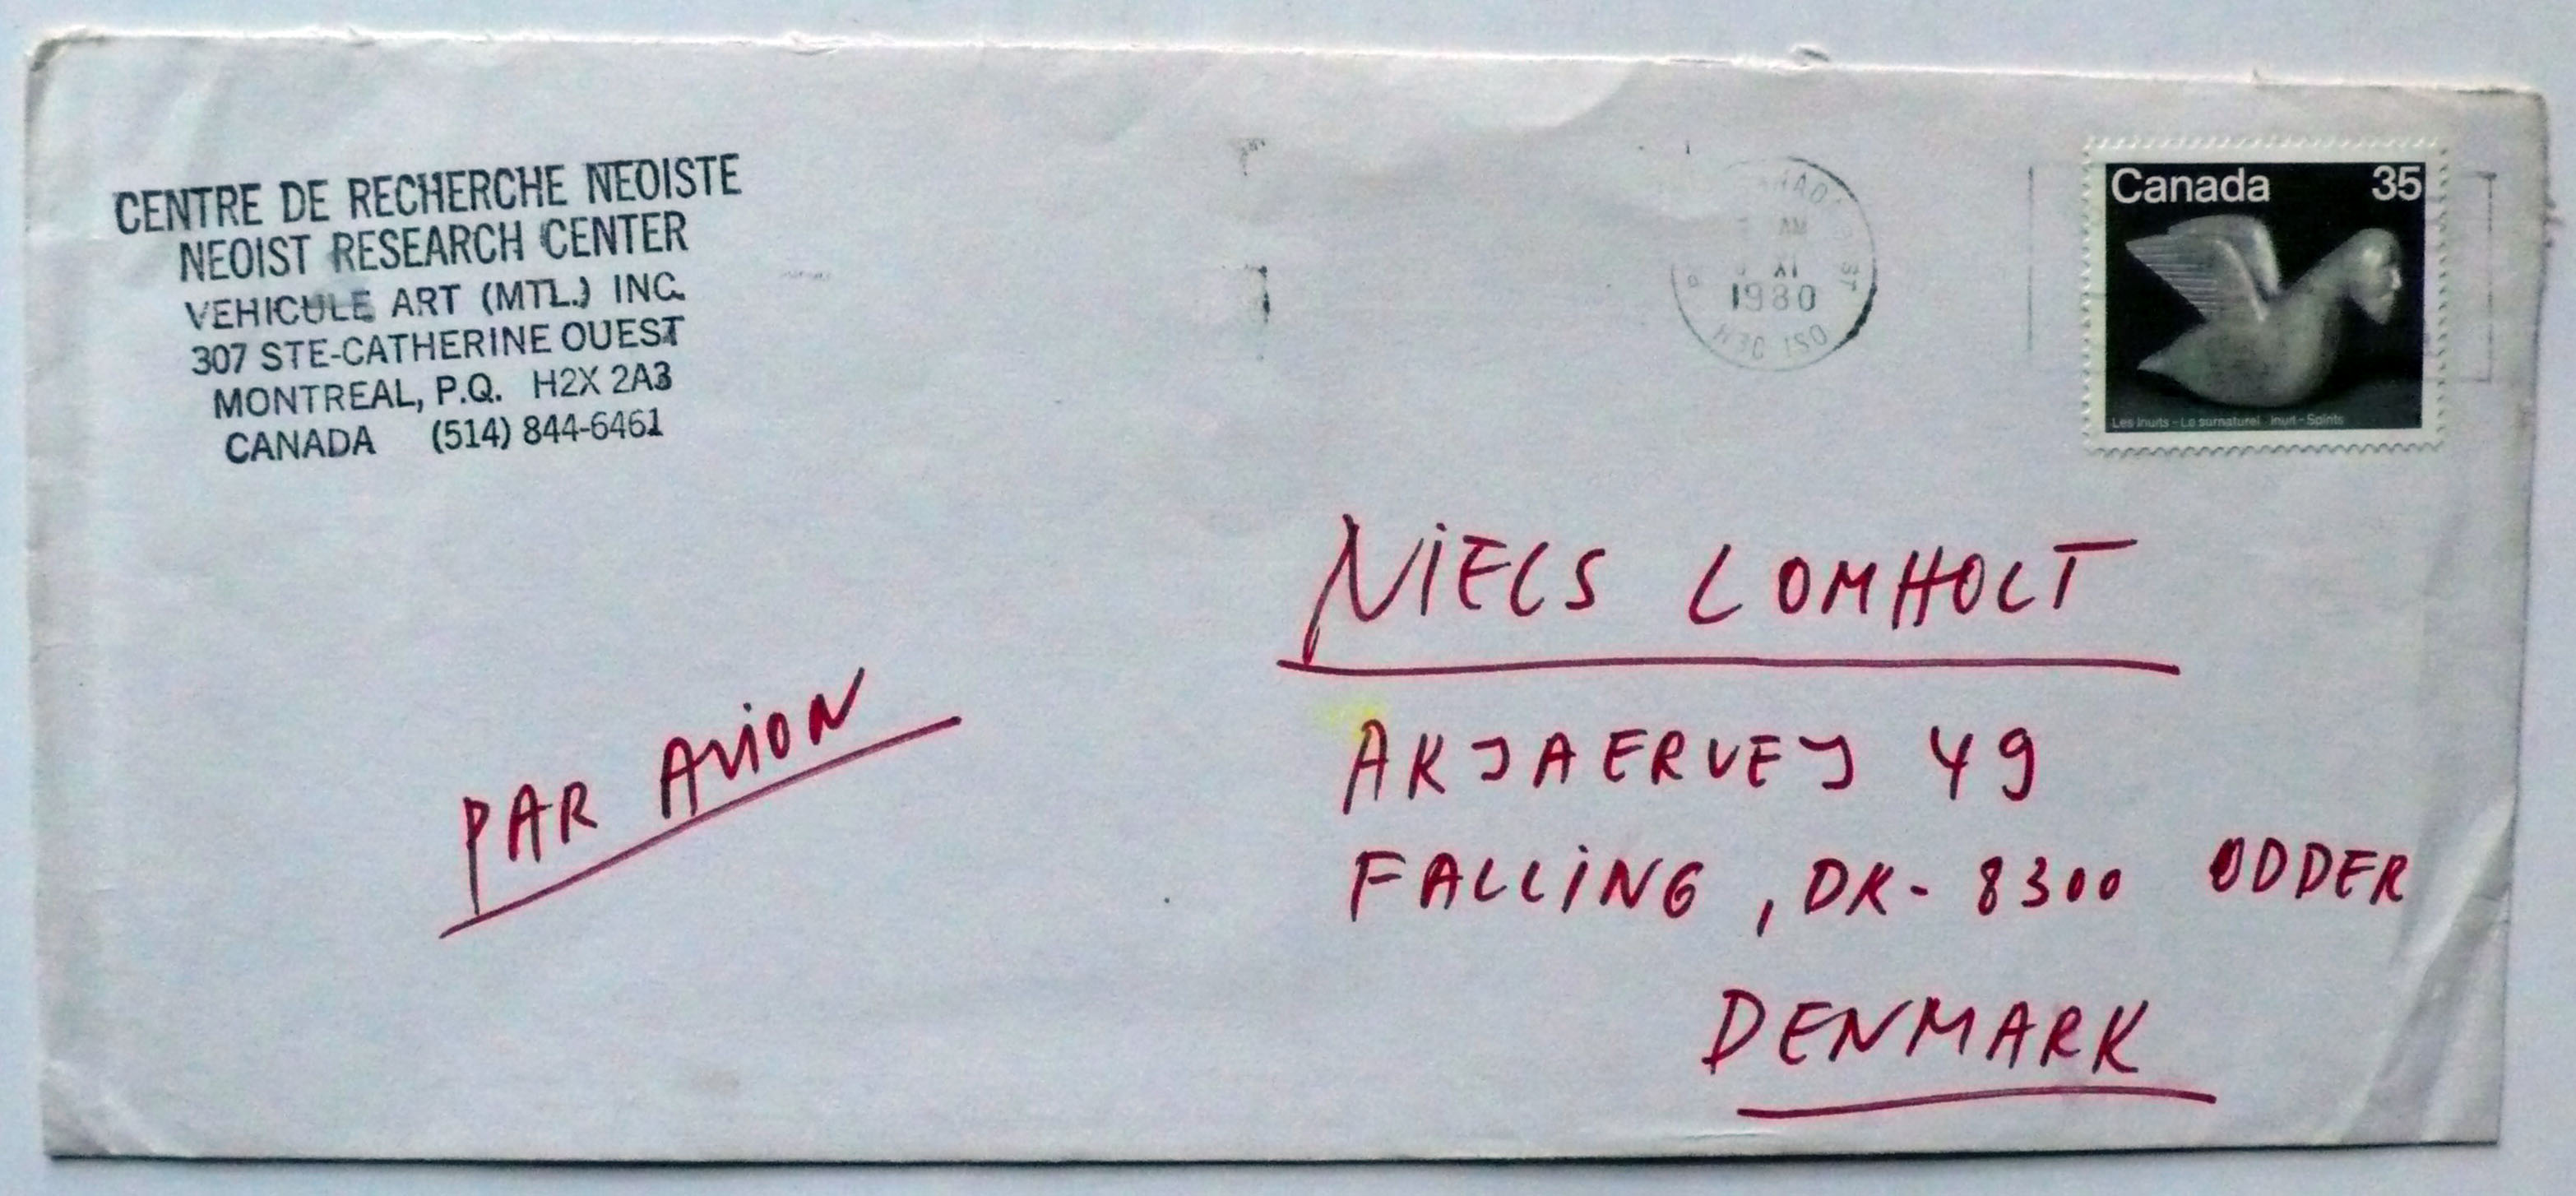 CENTRE DE RECHERCHE NEOISTE
NEOIST RESEARCH CENTER
VEHICULE ART (MTL.) INC.
307 STE-CATHERINE OUEST
MONTREAL, P.Q. H2X 2A3
CANADA (514) 844-6461
1980
Canada 35
Les Inuits - Le surnaturel Inuit - Spirits
NIELS LOMHOLT
AKJAERVEJ 49
FALLING, DK- 8300 ODDER
DENMARK
PAR AVION